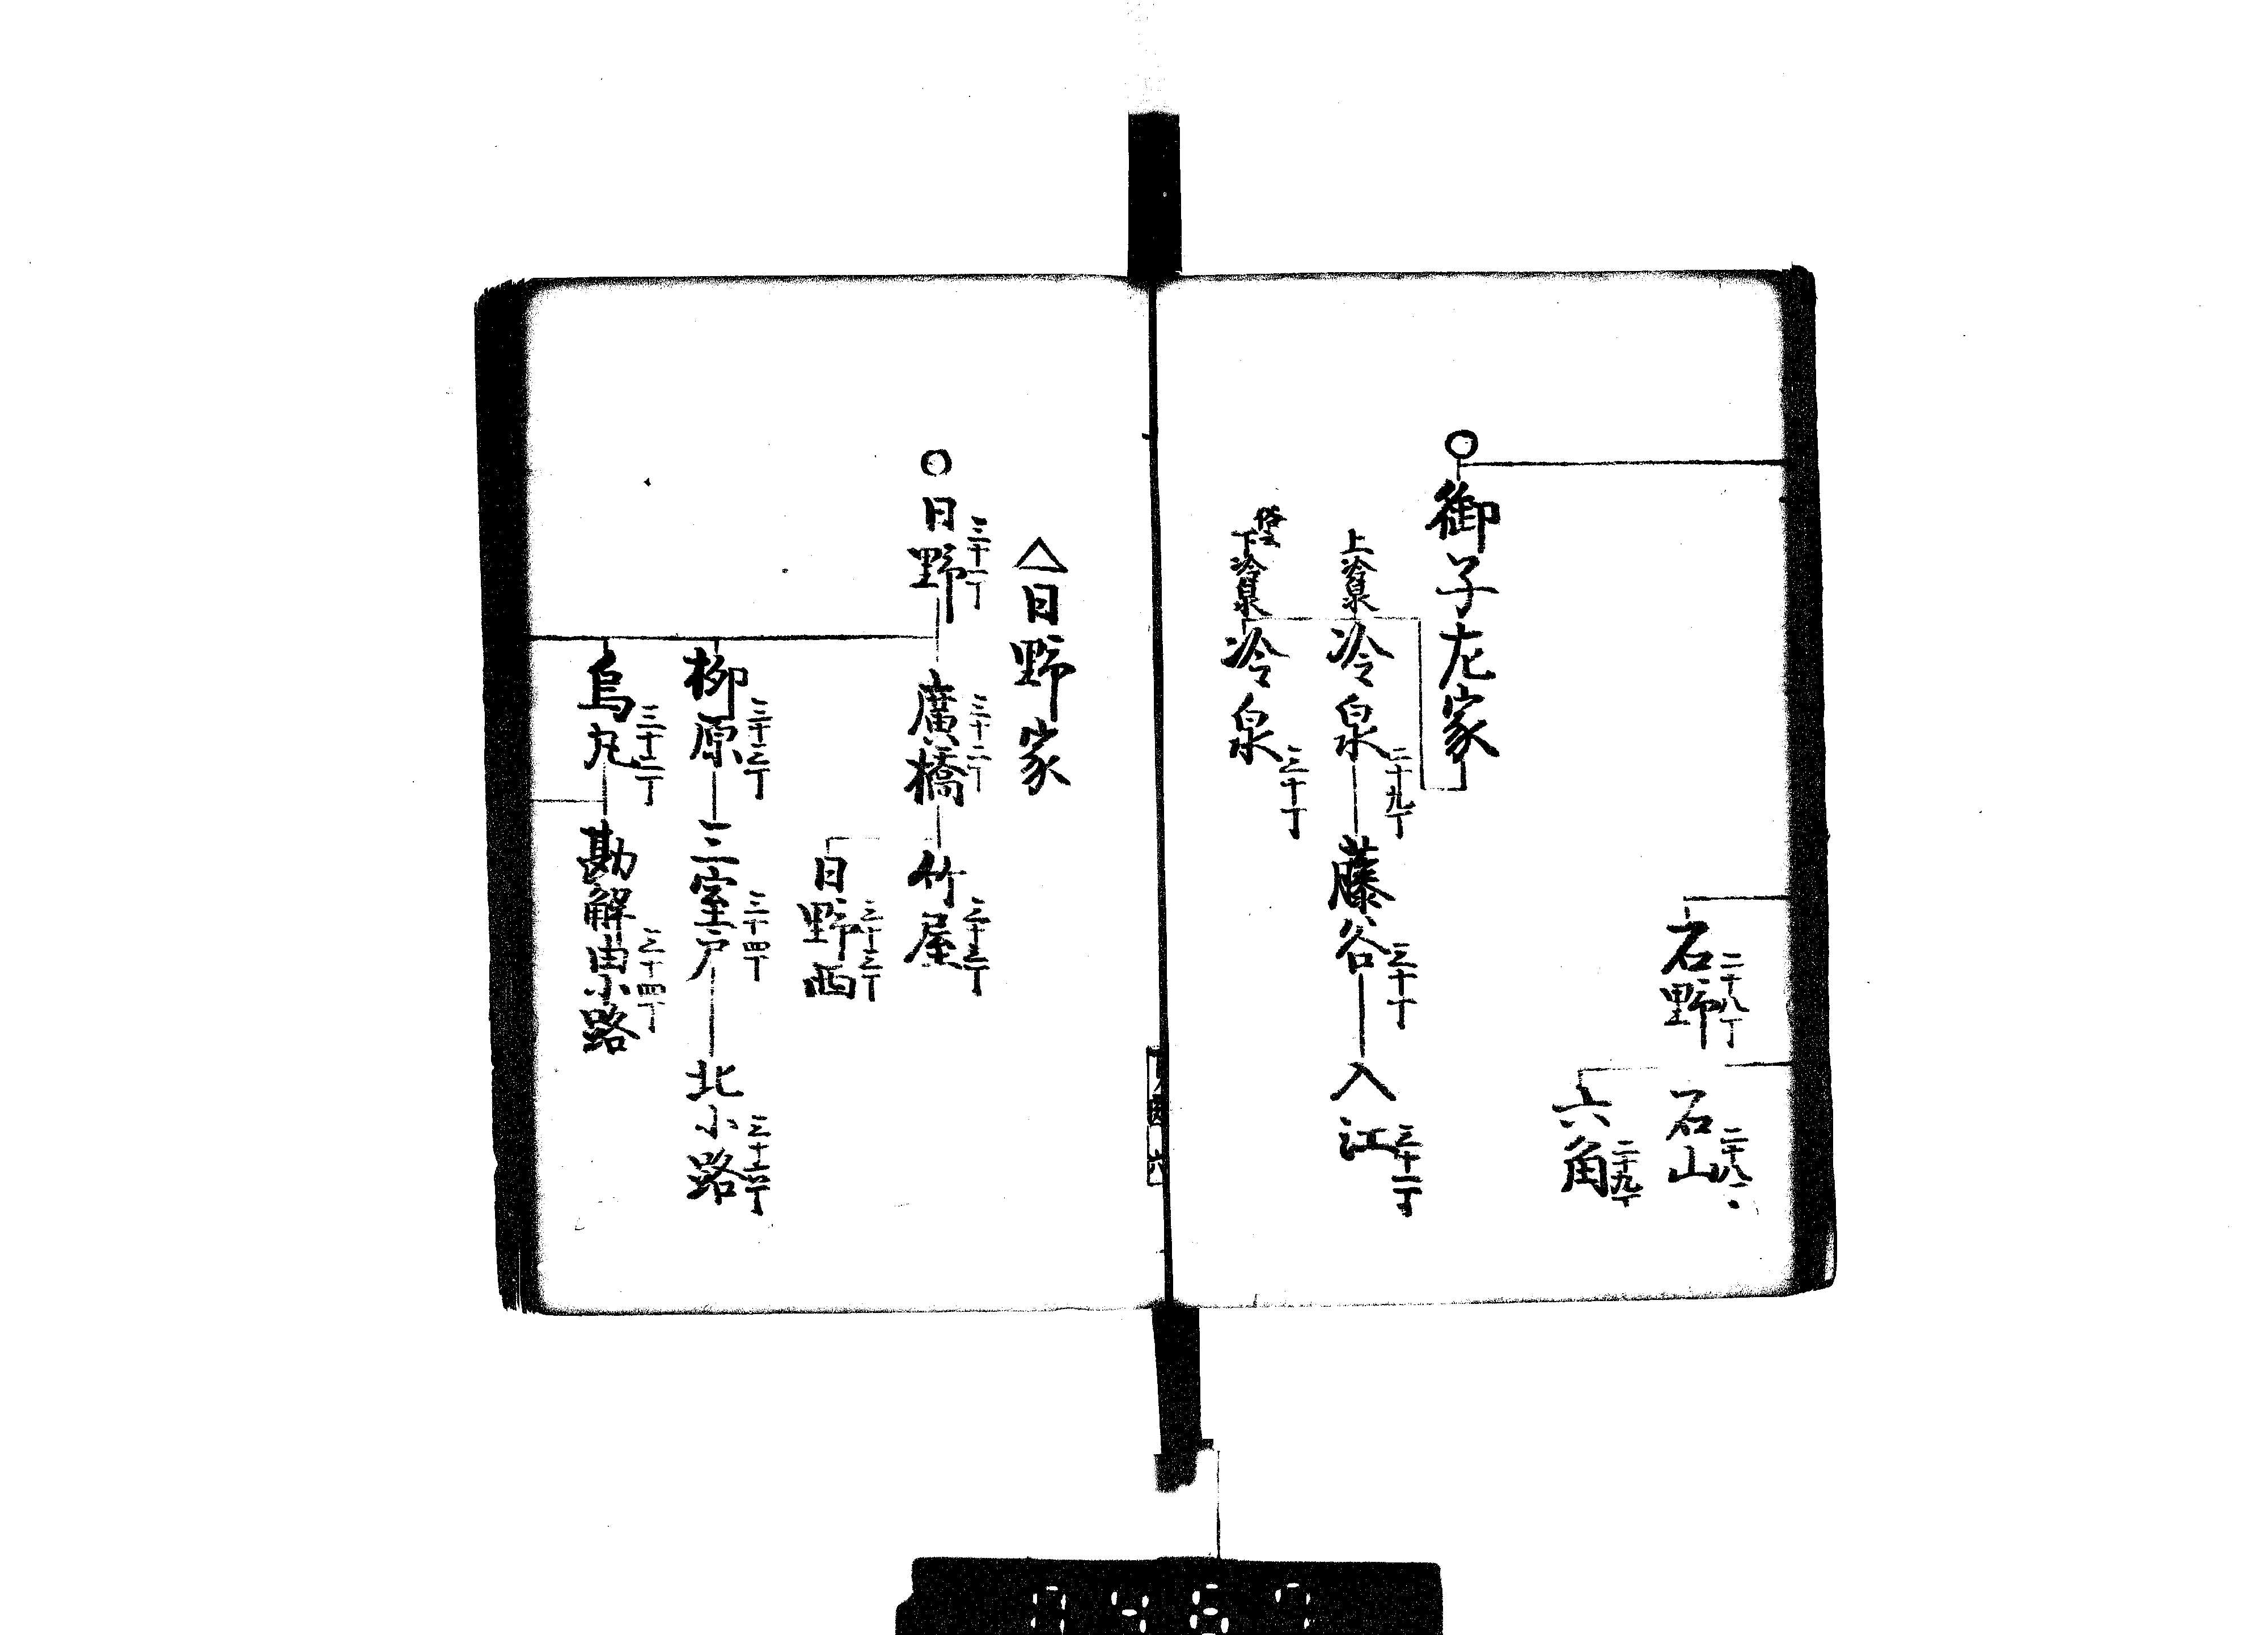 石野 二十八丁
石山 二十八丁
六角 二十九丁
○御子左家
上冷泉
冷泉 二十九丁
藤谷 三十丁
入江 三十一丁
俗云
下冷泉
冷泉 三十丁
△日野家
○日野 三十一丁
廣橋 三十二丁
竹屋 三十三丁
日野西 三十三丁
柳原 三十三丁
三室戸 三十四丁
北小路
烏丸
勘解由小路 三十四丁